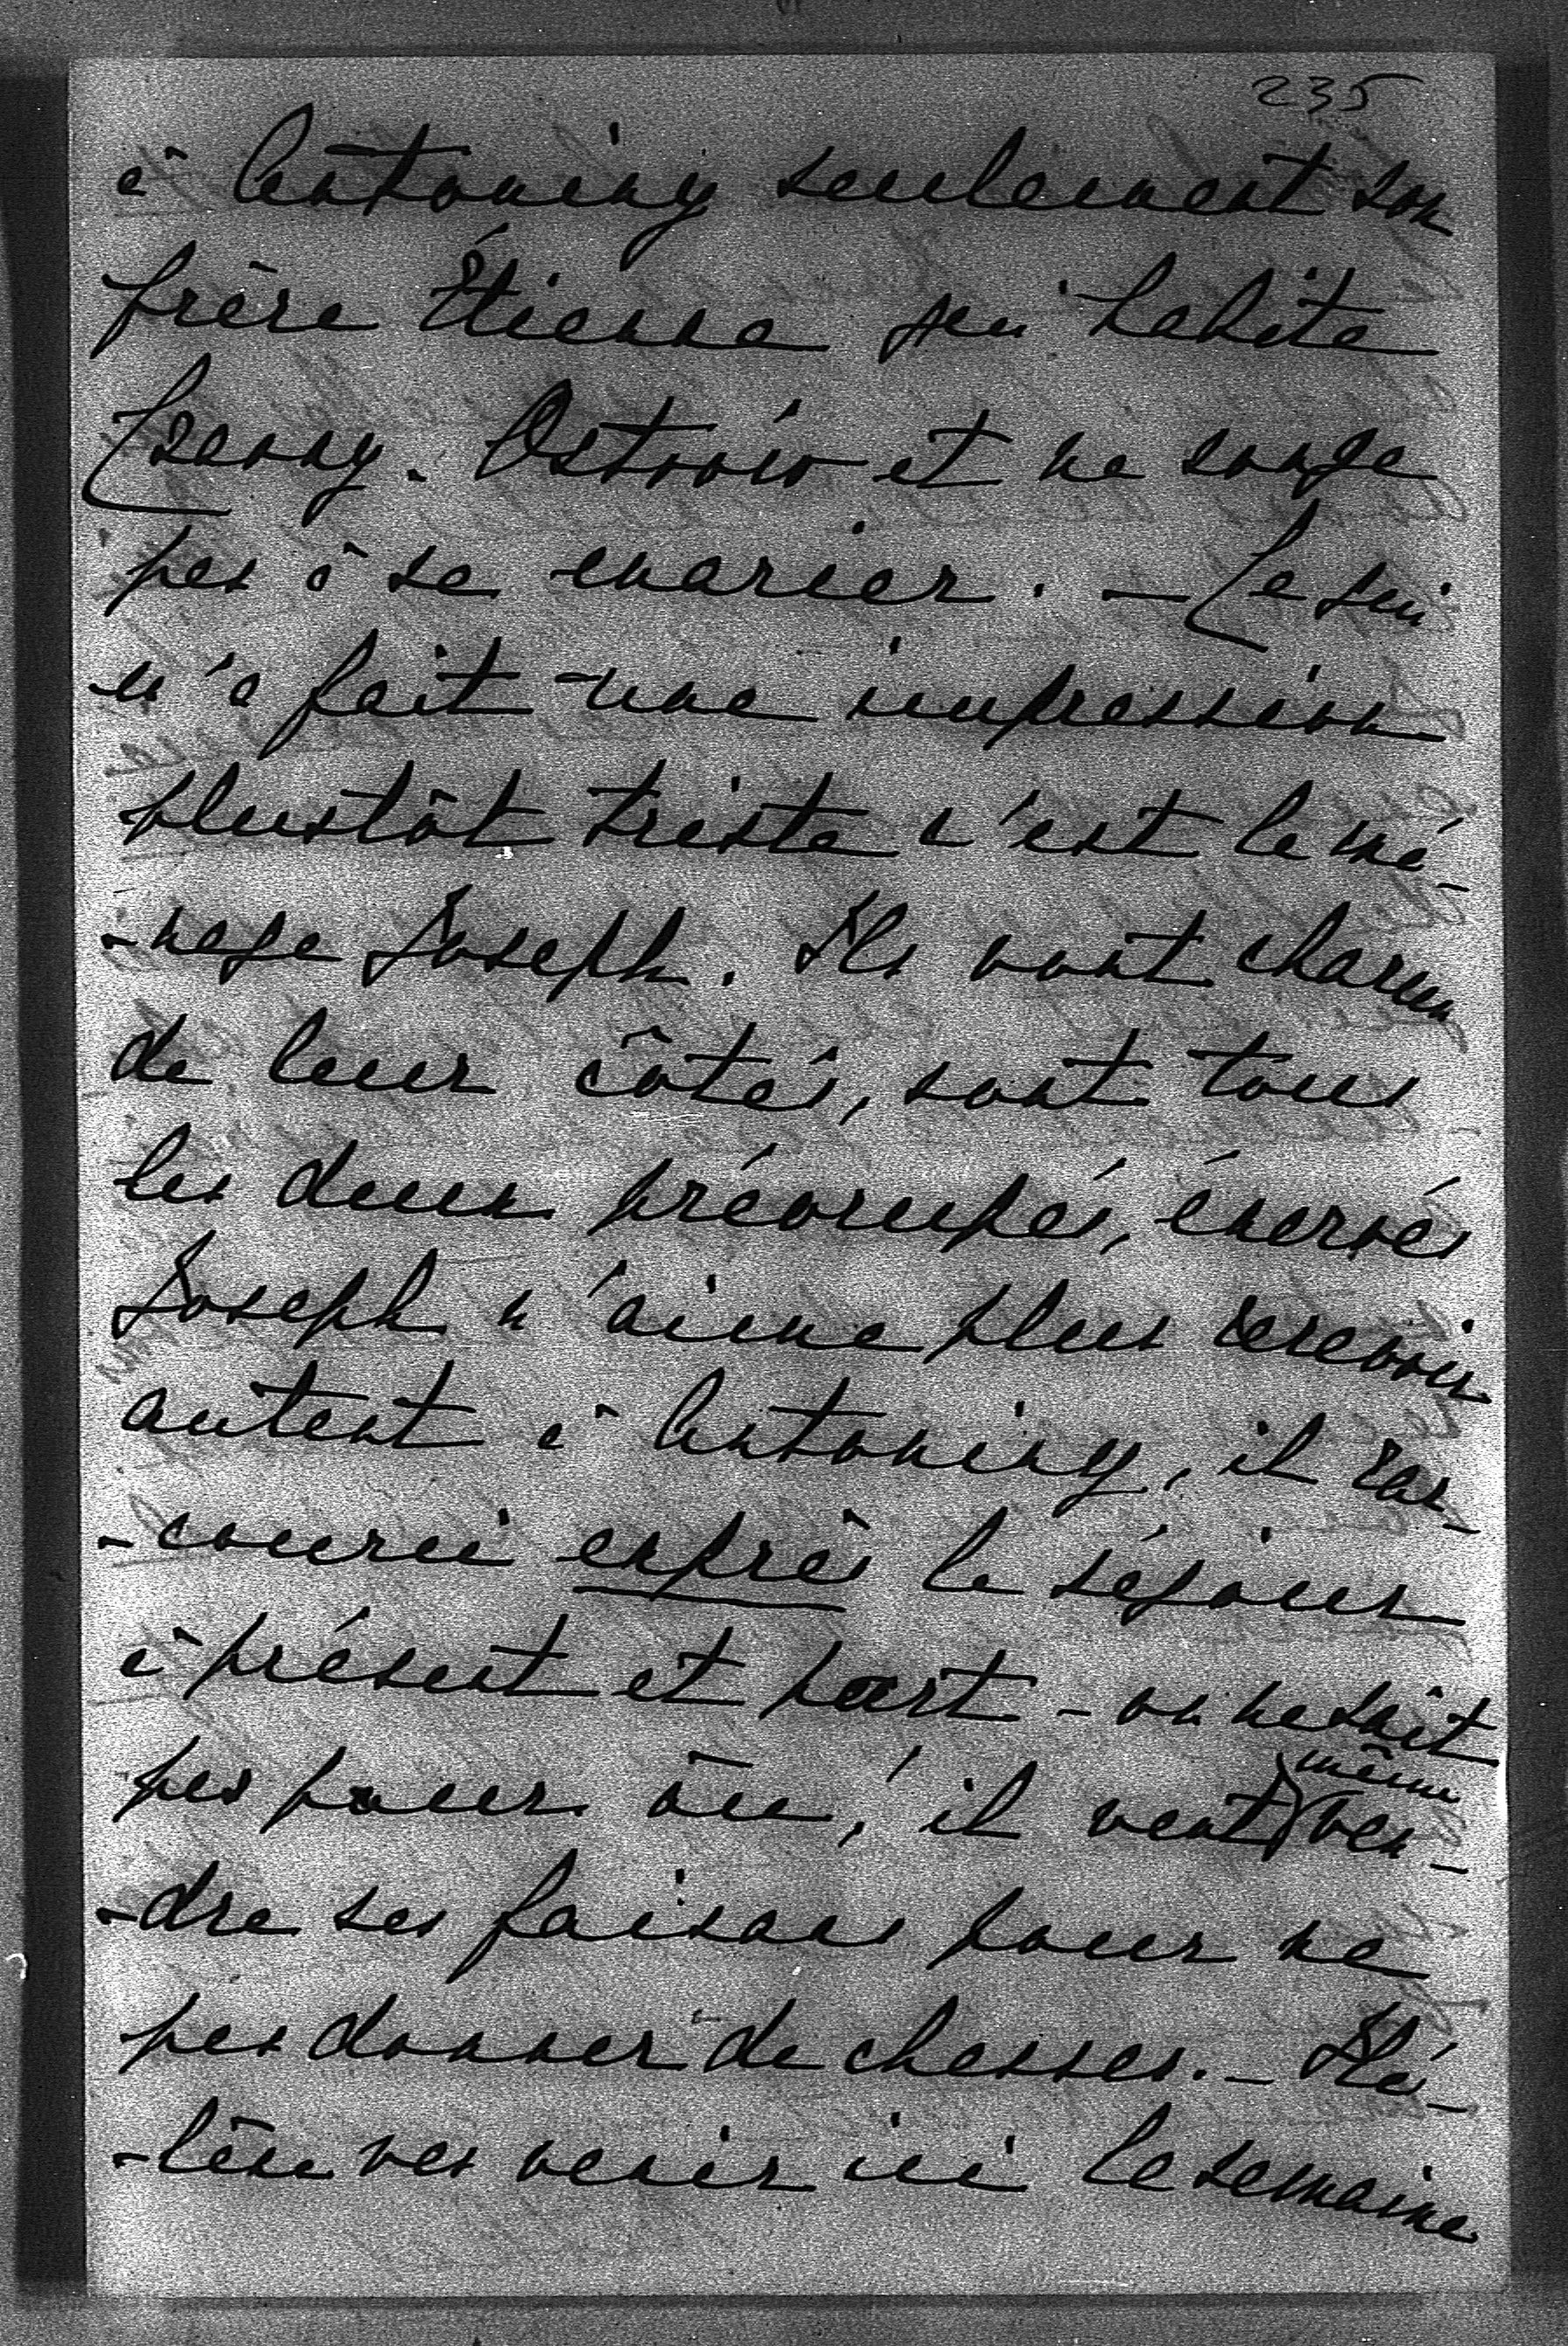 235
à Antoniny seulement son
frère Étienne qui habite
Czarny-Ostrów et ne songe
pas à se marier. — Ce qui
m'a fait une impression
plustôt triste c'est le mé-
-nage Joseph. Ils vont chacun
de leur côtés, sont tous
les deux préoccupés, énervés
Joseph n'aime plus recevoir
autant à Antoniny, il rac-
-courci exprès le séjour
à présent et part - on ne sait
pas pour où, il veut même ven-
-dre ses faisans pour ne
pas donner de chasses. — Hé-
-lène va venir ici la semaine